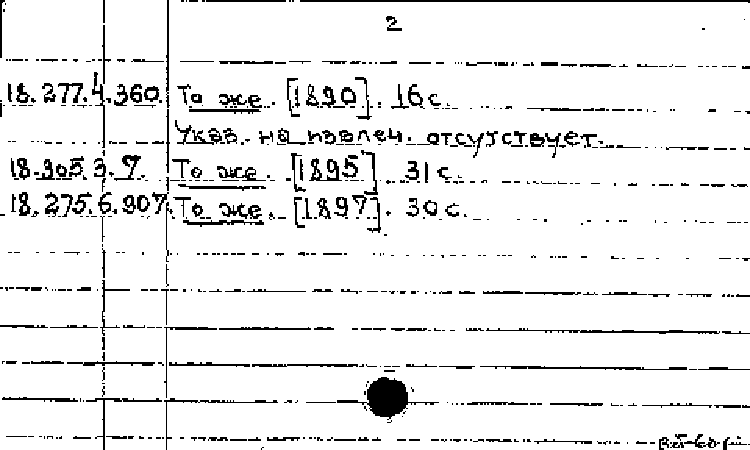 2
18.277.4.360. То же. [1890]. 16 с.
Указ. на извлеч. отсутствует.
18.305.3.7. То же. [1895]. 31 с.
18.275.6.307. То же. [1897]. 30 с.